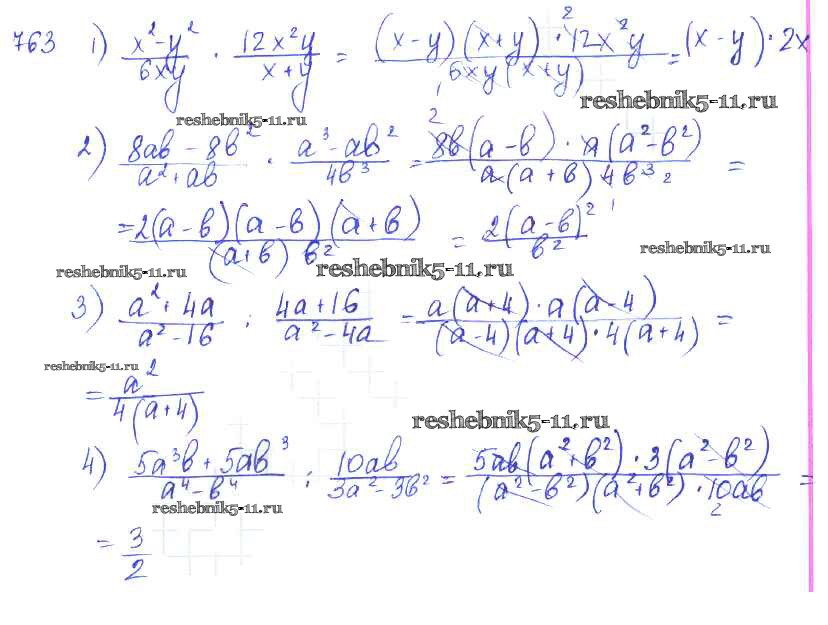 763 1) (x² - y²)/(6xy) · (12x²y)/(x + y) = ((x - y)(x + y) · 12x²y)/(6xy(x + y)) = (x - y) · 2x
2
1
reshebnik5-11.ru
reshebnik5-11.ru
2) (8ab - 8b²)/(a² + ab) · (a³ - ab²)/(4b³) = (8b(a - b) · a(a² - b²))/(a(a + b) 4b³) =
2
2
1
= (2(a - b)(a - b)(a + b))/((a + b) b²) = (2(a - b)²)/(b²)
reshebnik5-11.ru
reshebnik5-11.ru
reshebnik5-11.ru
3) (a² + 4a)/(a² - 16) : (4a + 16)/(a² - 4a) = (a(a + 4) · a(a - 4))/((a - 4)(a + 4) · 4(a + 4)) =
reshebnik5-11.ru
= (a²)/(4(a + 4))
reshebnik5-11.ru
4) (5a³b + 5ab³)/(a⁴ - b⁴) : (10ab)/(3a² - 3b²) = (5ab(a² + b²) · 3(a² - b²))/((a² - b²)(a² + b²) · 10ab) =
2
reshebnik5-11.ru
= 3/2